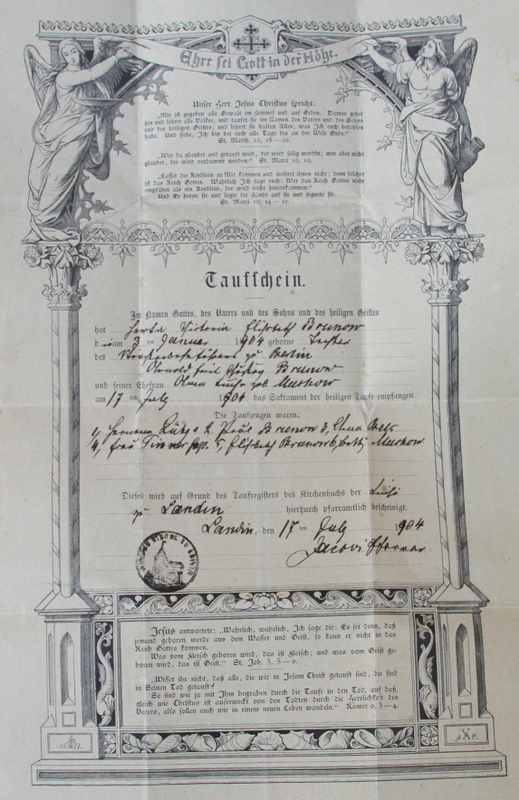 Ehre sei Gott in der Höhe.
Unser Herr Jesus Christus spricht:
„Mir ist gegeben alle Gewalt im Himmel und auf Erden. Darum gehet
hin und lehret alle Völker, und taufet sie im Namen des Vaters und des Sohns
und des heiligen Geistes; und lehret sie halten Alles, was Ich euch befohlen
habe. Und siehe, Ich bin bei euch alle Tage bis an der Welt Ende."
St. Matth. 28, 18—20.
„Wer da glaubet und getauft wird, der wird selig werden; wer aber nicht
glaubet, der wird verdammt werden." St. Marci 16, 16.
„Lasset die Kindlein zu Mir kommen und wehret ihnen nicht; denn solcher
ist das Reich Gottes. Wahrlich Ich sage euch: Wer das Reich Gottes nicht
empfähet als ein Kindlein, der wird nicht hineinkommen."
Und Er herzte sie und legte die Hände auf sie und segnete sie.
St. Marci 10, 14—16.
Taufschein.
Im Namen Gottes, des Vaters und des Sohns und des heiligen Geistes
hat Herta Victoria Elisabeth Brunow
d am 3 ten Januar 1904 geborne Tochter
des zu Berlin
Emil Brunow
und seiner Ehefrau geb Murkow
am 17 ten July 1904 das Sakrament der heiligen Taufe empfangen.
Die Taufzeugen waren:
1, Hermann 2, Paul Brunow 3,
4, Frau 5, Elisabeth Brunow 6, Murkow.
Dieses wird auf Grund des Taufregisters des Kirchenbuchs der
zu Landin hierdurch pfarramtlich bescheinigt.
Landin, den 17 ten July 1904
Jacobi Pfarrer
Jesus antwortete: „Wahrlich, wahrlich, Ich sage dir: Es sei denn, daß
jemand geboren werde aus dem Wasser und Geist, so kann er nicht in das
Reich Gottes kommen.
Was vom Fleisch geboren wird, das ist Fleisch; und was vom Geist ge-
boren wird, das ist Geist." St. Joh. 3, 5—6.
„Wisset ihr nicht, daß alle, die wir in Jesum Christ getauft sind, die sind
in Seinen Tod getauft?
So sind wir je mit Ihm begraben durch die Taufe in den Tod, auf daß,
gleich wie Christus ist auferweckt von den Todten durch die Herrlichkeit des
Vaters, also sollen auch wir in einem neuen Leben wandeln." Römer 6, 3—4.